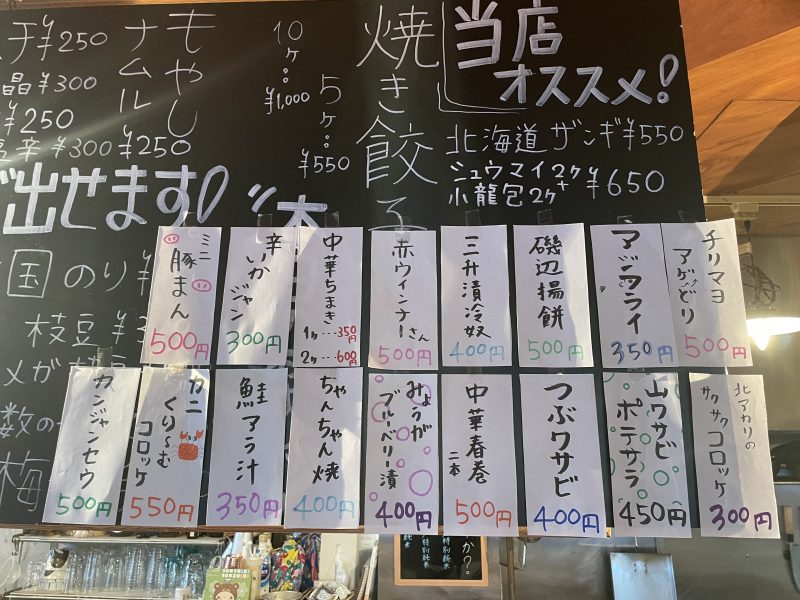 当店
オススメ!
北海道 ザンギ¥550
シュウマイ2ケ+
小龍包2ケ
¥650
焼き餃子
5ケ…
¥550
10ケ…
¥1,000
もやし
ナムル
¥250
¥250
¥300
¥250
¥300
出せます!
国のり
枝豆
チリマヨ
アゲどり
500円
アジフライ
350円
磯辺揚餅
500円
三升漬冷奴
400円
赤ウィンナーさん
500円
中華ちまき
1ヶ…350円
2ヶ…600円
辛いかジャン
300円
ミニ
豚まん
500円
北アカリの
サクサクコロッケ
300円
山ワサビ
ポテサラ
450円
つぶワサビ
400円
中華春巻
二本
500円
みょうが
ブルーベリー漬
400円
ちゃんちゃん焼
400円
鮭アラ汁
350円
カニ
くり〜む
コロッケ
550円
カンジャンセウ
500円
梅
か?
特別純米